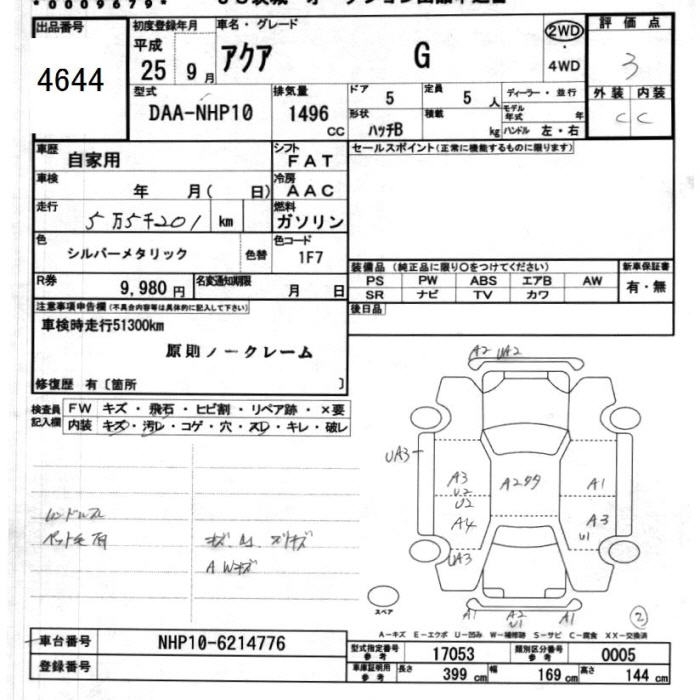 *0009679*
出品番号
4644
初度登録年月
平成
25年 9月
車名・グレード
アクア G
2WD
・
4WD
評価点
3
外装 内装
C C
型式
DAA-NHP10
排気量
1496
CC
ドア
5
定員
5 人
形状
ハッチB
積載
kg
ディーラー・並行
モデル年式 年
ハンドル 左・右
車歴
自家用
シフト
FAT
車検
年 月( 日)
冷房
AAC
走行
5万5千201 km
燃料
ガソリン
色
シルバーメタリック
色替
色コード
1F7
R券
9,980 円
名変通知期限
月 日
セールスポイント(正常に機能するものに限ります)
装備品 (純正品に限り○をつけてください)
PS PW ABS エアB AW
SR ナビ TV カワ
新車保証書
有・無
後日品
注意事項申告欄(不具合内容等は具体的に記入して下さい)
車検時走行51300km
原則ノークレーム
修復歴 有〔箇所 〕
検査員
記入欄
FW キズ・飛石・ヒビ割・リペア跡・×要
内装 キズ・汚レ・コゲ・穴・スレ・キレ・破レ
A2 UA2
UA3
A3
U2
U2
A4
UA3
A1
A3
U1
ハンドルスレ
ペット毛有
A Wキズ
スペア
A1 A2 A1
U1
2
A-キズ E-エクボ U-凹み W-補修跡 S-サビ C-腐食 XX-交換済
車台番号
NHP10-6214776
登録番号
型式指定番号
参考
17053
類別区分番号
参考
0005
車庫証明用
参考
長さ 399 cm
幅 169 cm
高さ 144 cm